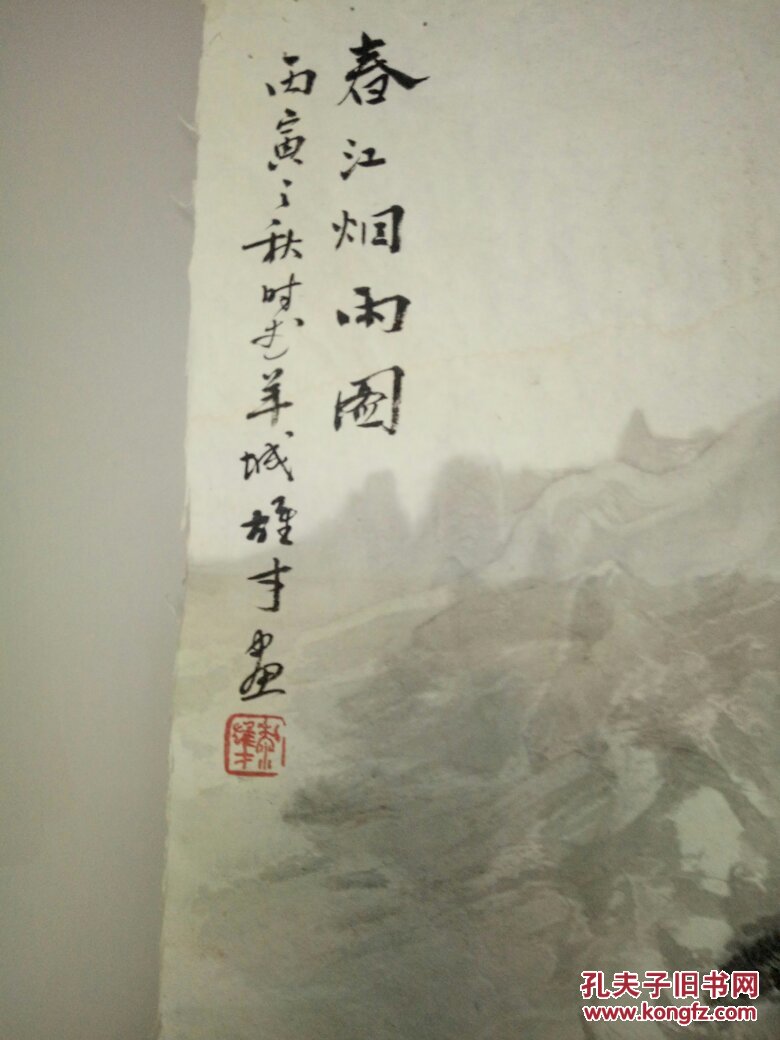 春江烟雨图
丙寅之秋时于羊城雄才画
黎雄才
孔夫子旧书网
www.kongfz.com